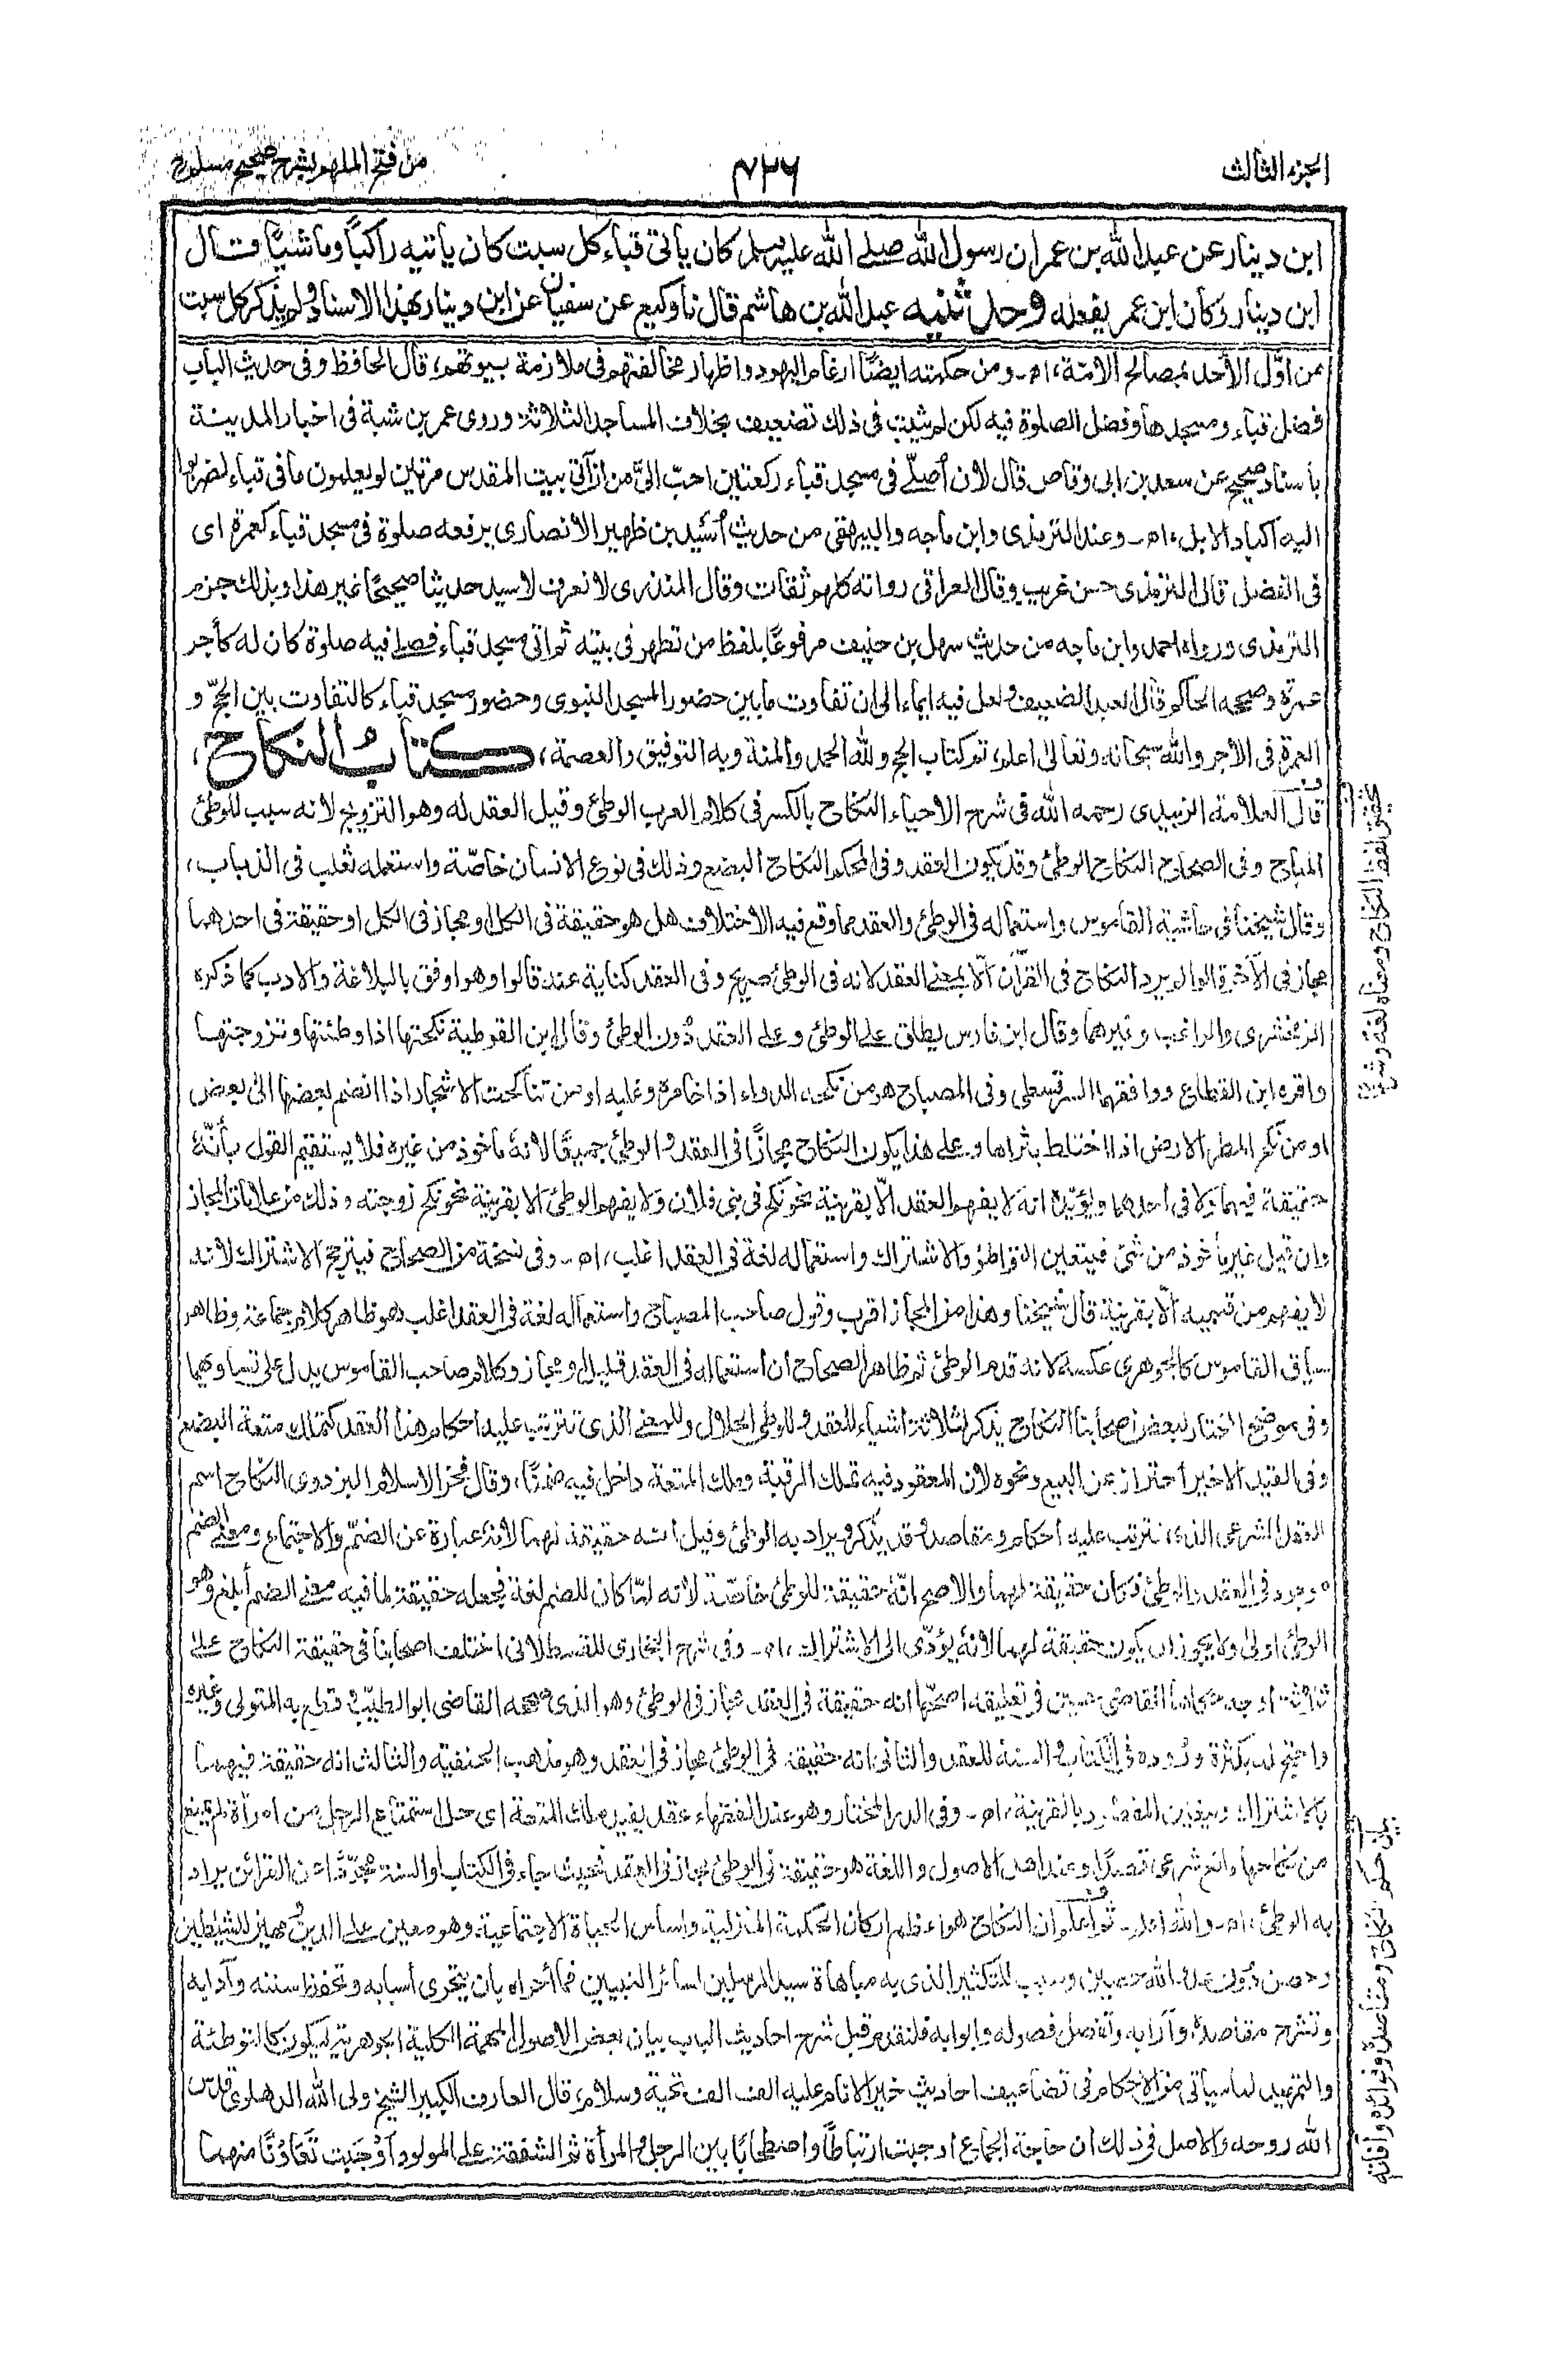 الجزء الثالث
٤٢٦
من فتح الملهم بشرح صحيح مسلم
ابن دينار عن عبد الله بن عمر ان رسول الله صلے الله عليه وسلم كان يأتى قباء كل سبت كان يأتيه راكبًا وماشيًا قال
ابن دينار وكان ابن عمر يفعله وحدثنيه عبد الله بن هاشم قال نا وكيع عن سفيان عن ابن دينار بهذا الاسناد ولم يذكر كل سبت
من اوّل الأحد لمصالح الامّة، اھ ـ ومن حكمته ايضًا ارغام اليهود واظهار مخالفتهم فى ملازمة بيوتهم، قال الحافظ وفى حديث الباب
فضل قباء ومسجدها وفضل الصلوة فيه لكن لم يثبت فى ذلك تضعيف بخلاف المساجد الثلاثة وروى عمر بن شبة فى اخبار المدينة
بأسناد صحيح عن سعد بن ابى وقاص قال لان أصلّے فى مسجد قباء ركعتين احبّ الىّ من ان آتى بيت المقدس مرتين لو يعلمون ما فى قباء لضربوا
اليه اكباد الابل، اھ ـ وعند الترمذى وابن ماجه والبيهقى من حديث أسيد بن ظهير الأنصارى يرفعه صلوة فى مسجد قباء كعمرة اى
فى الفضل قال الترمذى حسن غريب وقال العراقى رواته كلهم ثقات وقال المنذرى لا نعرف لاسيد حديثا صحيحًا غير هذا وبذلك جزم
الترمذى ورواه احمد وابن ماجه من حديث سهل بن حنيف مرفوعًا بلفظ من تطهر فى بيته ثم اتى مسجد قباء فصلے فيه صلوة كان له كأجر
عمرة وصححه الحاكم قال العبد الضعيف ولعل فيه ايماء الى ان تفاوت ما بين حضور المسجد النبوى وحضور مسجد قباء كالتفاوت بين الحجّ و
العمرة فى الأجر والله سبحانه وتعالى اعلم، تم كتاب الحج ولله الحمد والمنة وبه التوفيق والعصمة، كتابُ النكاح،
قال العلامة الزبيدى رحمه الله فى شرح الاحياء النكاح بالكسر فى كلام العرب الوطئ وقيل العقد له وهو التزويج لانه سبب للوطئ
المباح وفى الصحاح النكاح الوطئ وقد يكون العقد وفى المحكم النكاح البضع وذلك فى نوع الانسان خاصّة واستعمله ثعلب فى الذباب،
وقال شيخنا فى حاشية القاموس واستعماله فى الوطئ والعقد مما وقع فيه الاختلاف هل هو حقيقة فى الكل او مجاز فى الكل او حقيقة فى احدهما
مجاز فى الآخر قالوا لم يرد النكاح فى القرآن الّا بمعنے العقد لانه فى الوطئ صريح وفى العقد كناية عنه قالوا وهو اوفق بالبلاغة والادب كما ذكره
الزمخشرى والراغب وغيرهما وقال ابن فارس يطلق علے الوطئ وعلے العقد دُون الوطئ وقال ابن القوطية نكحتها اذا وطئتها وتزوجتها
واقره ابن القطاع ووافقهما السرقسطى وفى المصباح هو من نكحه الدواء اذا خامره وغلبه او من تناكحت الاشجار اذا انضم بعضها الى بعض
او من نكح المطر الارض اذا اختلط بثراها وعلى هذا يكون النكاح مجازًا فى العقد والوطئ جميعًا لانه مأخوذ من غيره فلا يستقيم القول بأنّه
حقيقة فيهما ولا فى احدهما ويؤيّده انه لا يفهم العقد الّا بقرينة نحو نكح فى بنى فلان ولا يفهم الوطئ الا بقرينة نحو نكح زوجته وذلك من علامات المجاز
وان قيل غير مأخوذ من شئ فيتعين التواطؤ والاشتراك واستعماله لغة فى العقد اغلب، اھ ـ وفى نسخة من الصحاح فيترجح الاشتراك لانه
لا يفهم من قسميه الّا بقرينة قال شيخنا وهذا من المجاز اقرب وقول صاحب المصباح واستعماله لغة فى العقد اغلب هو ظاهر كلام جماعة وظاهر
سياق القاموس كالجوهرى عكسه لانه قدم الوطئ ثم ظاهر الصحاح ان استعماله فى العقد قليل او مجاز وكلام صاحب القاموس يدل على تساويهما
وفى موضح المختار لبعض اصحابنا النكاح يذكر لثلاثة اشياء للعقد وللوطئ الحلال وللمعنے الذى تترتب عليه احكام هذا العقد كتملك متعة البضع
وفى القيد الاخير احتراز عن البيع ونحوه لان المعقود فيه تملك الرقبة، وملك المتعة داخل فيه ضمنًا، وقال فخر الاسلام البزدوى النكاح اسم
للعقد الشرعى الذى تترتب عليه احكام ومقاصد وقد يذكر ويراد به الوطئ وقيل انه حقيقة لهما لأنه عبارة عن الضمّ والاجتماع ومعنى الضم
موجود فى العقد والوطئ فكان حقيقة لهما والاصح انّه حقيقة للوطئ خاصّة لانه لمّا كان للضم لغة فجعله حقيقة لما فيه معنے الضم أبلغ وهو
الوطئ اولى ولا يجوز ان يكون حقيقة لهما لأنه يؤدّى الى الاشتراك، اھ ـ وفى شرح البخارى للقسطلانى اختلف اصحابنا فى حقيقة النكاح على
ثلاثة اوجه حكاها القاضى حسين فى تعليقه اصحّها انه حقيقة فى العقد مجاز فى الوطئ وهو الذى صححه القاضى ابو الطيّب وقطع به المتولى وغيره
واحتج له بكثرة وروده فى الكتاب والسنة للعقد والثانى انه حقيقة فى الوطئ مجاز فى العقد وهو مذهب الحنفية والثالث انه حقيقة فيهما
بالاشتراك ويتعين المقصود بالقرينة، اھ ـ وفى الدر المختار وهو عند الفقهاء عقد يفيد ملك المتعة اى حل استمتاع الرجل من امرأة لم يمنع
من نكاحها مانع شرعى قصدًا، وعند اهل الاصول واللغة هو حقيقة فى الوطئ مجاز فى العقد فحيث جاء فى الكتاب او السنة مجرّدًا عن القرائن يراد
به الوطئ، اھ ـ والله اعلم ـ ثم اعلم ان النكاح هو اعظم اركان الحكمة المنزلية، واساس الحياة الاجتماعية، وهو معين على الدين ومهين للشيطين
وحصن دون عدو الله حصين، وسبب للتكثير الذى به مباهاة سيد المرسلين لسائر النبيين فما أحراه بأن يتحرى أسبابه وتحفظ سننه وآدابه
وتشرح مقاصده وآرابه، وتفصل فصوله وابوابه فلنقدم قبل شرح احاديث الباب بيان بعض الاصول المهمة الكلية الجوهرية ليكون كالتوطئة
والتمهيد لما سيأتى من الاحكام فى تضاعيف احاديث خير الانام عليه الف الف تحية وسلام، قال العارف الكبير الشيخ ولى الله الدهلوى قدس
الله روحه والاصل فى ذلك ان حاجة الجماع اوجبت ارتباطًا واصطحابًا بين الرجل والمرأة ثم الشفقة على المولود أوجَبت تَعَاوُنًا منهما
تحقيق لفظ النكاح ومعناه لغة وشرعًا
بيان حكم النكاح ومقاصده وفوائده وآفاته